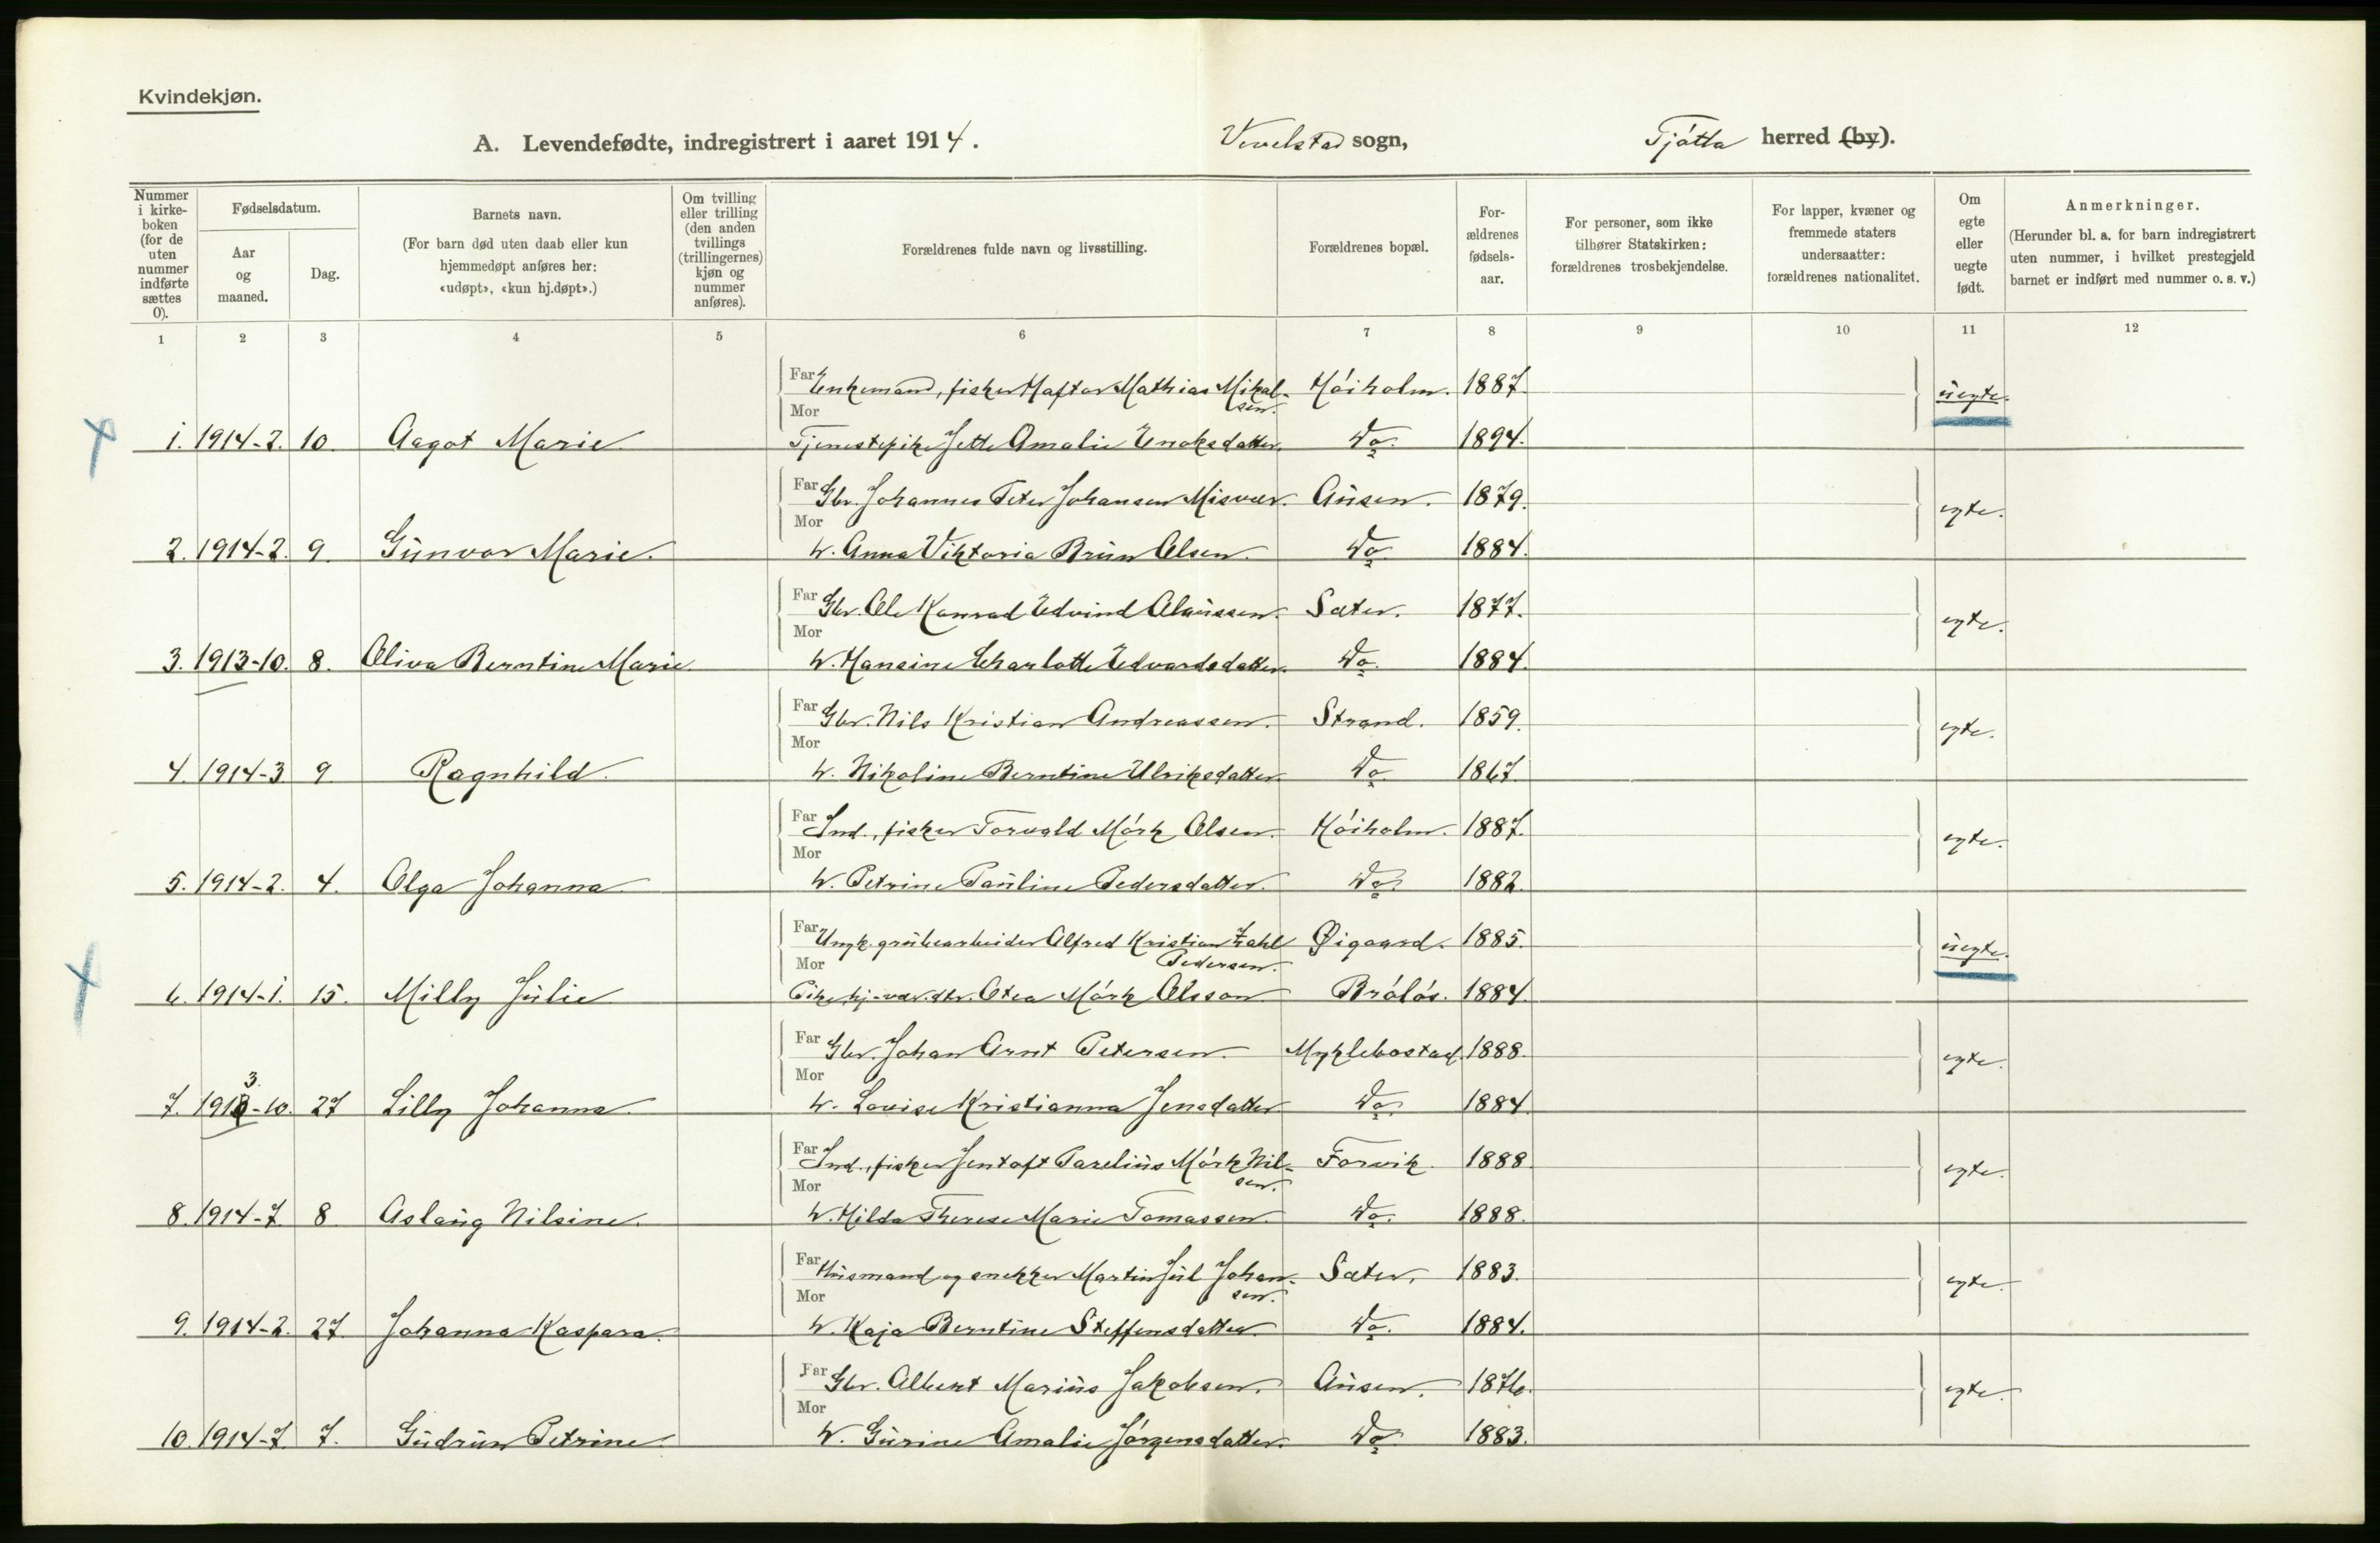 Kvindekjøn.
A. Levendefødte, indregistrert i aaret 1914. Vevelstad sogn, Tjótta herred (by).
Nummer i kirkeboken (for de uten nummer indførte sættes 0).
Fødselsdatum.
Aar og maaned.
Dag.
Barnets navn.
(For barn død uten daab eller kun hjemmedøpt anføres her: «udøpt», «kun hj.døpt».)
Om tvilling eller trilling (den anden tvillings (trillingernes) kjøn og nummer anføres).
Forældrenes fulde navn og livsstilling.
Forældrenes bopæl.
For-ældrenes fødsels-aar.
For personer, som ikke tilhører Statskirken: forældrenes trosbekjendelse.
For lapper, kvæner og fremmede staters undersaatter: forældrenes nationalitet.
Om egte eller uegte født.
Anmerkninger.
(Herunder bl. a. for barn indregistrert uten nummer, i hvilket prestegjeld barnet er indført med nummer o. s. v.)
1 2 3 4 5 6 7 8 9 10 11 12
Far Enkemand, fisker Haftor Mathias Mikal-sen. Hóiholm. 1887. uegte.
1. 1914-2. 10. Aagot Marie Mor Tjenestepike Jette Amalie Enoksdatter. Do. 1894.
Far Gbr. Johannes Peter Johansen Misvær. Ausen. 1879. egte.
2. 1914-2. 9. Gunvor Marie. Mor H. Anna Viktoria Brun Olsen. Do. 1884.
Far Gbr. Ole Konrad Edvind Olaussen. Sæter. 1877. egte.
3. 1913-10. 8. Oliva Berntine Marie Mor H. Hansine Charlotte Edvardsdatter. Do. 1884.
Far Gbr. Nils Kristian Andreassen. Strand. 1859. egte.
4. 1914-3 9. Ragnhild. Mor H. Nikoline Berntine Ulriksdatter. Do. 1867.
Far Ind., fisker Torvald Mórk Olsen. Hóiholm. 1887. egte.
5. 1914-2. 4. Olga Johanna Mor H. Petrine Pauline Pedersdatter. Do. 1882.
Far Ungk. grubearbeider Alfred Kristian Zahl Pedersen. Øigaard. 1885. uegte.
6. 1914-1. 15. Milly Julie Mor Pike hj-vær. dtr. Otea Mórk Olsson Brólós. 1884.
Far Gbr. Johan Arnt Petersen. Myklebostad. 1888. egte.
7. 1913-10. 27 Lilly Johanna. Mor H. Lovise Kristianna Jensdatter Do. 1884.
Far Ind., fisker Jentoft Parelius Mórk Nil-sen. Forvik. 1888. egte.
8. 1914-7. 8 Aslaug Nilsine. Mor H. Hilda Therese Marie Tomassen. Do. 1888.
Far Husmand og snekker Martin Jul Johan-sen. Sæter. 1883. egte.
9. 1914-2. 27. Johanna Kaspara. Mor H. Kaja Berntine Steffensdatter. Do. 1884.
Far Gbr. Albert Marius Jakobsen. Ausen. 1876. egte.
10. 1914-7. 7. Gudrun Petrine. Mor H. Gurine Amalie Jórgensdatter. Do. 1883.